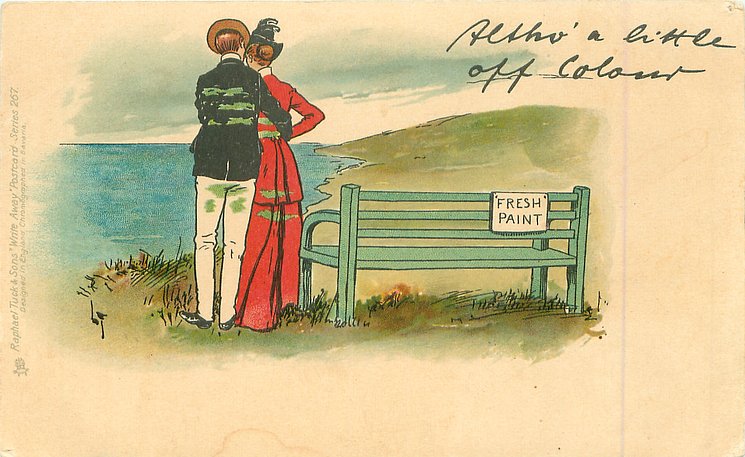 Altho' a little
off Colour
'FRESH'
PAINT
Raphael Tuck & Sons' "Write Away" Postcard Series 267.
Designed in England, Chromographed in Bavaria.